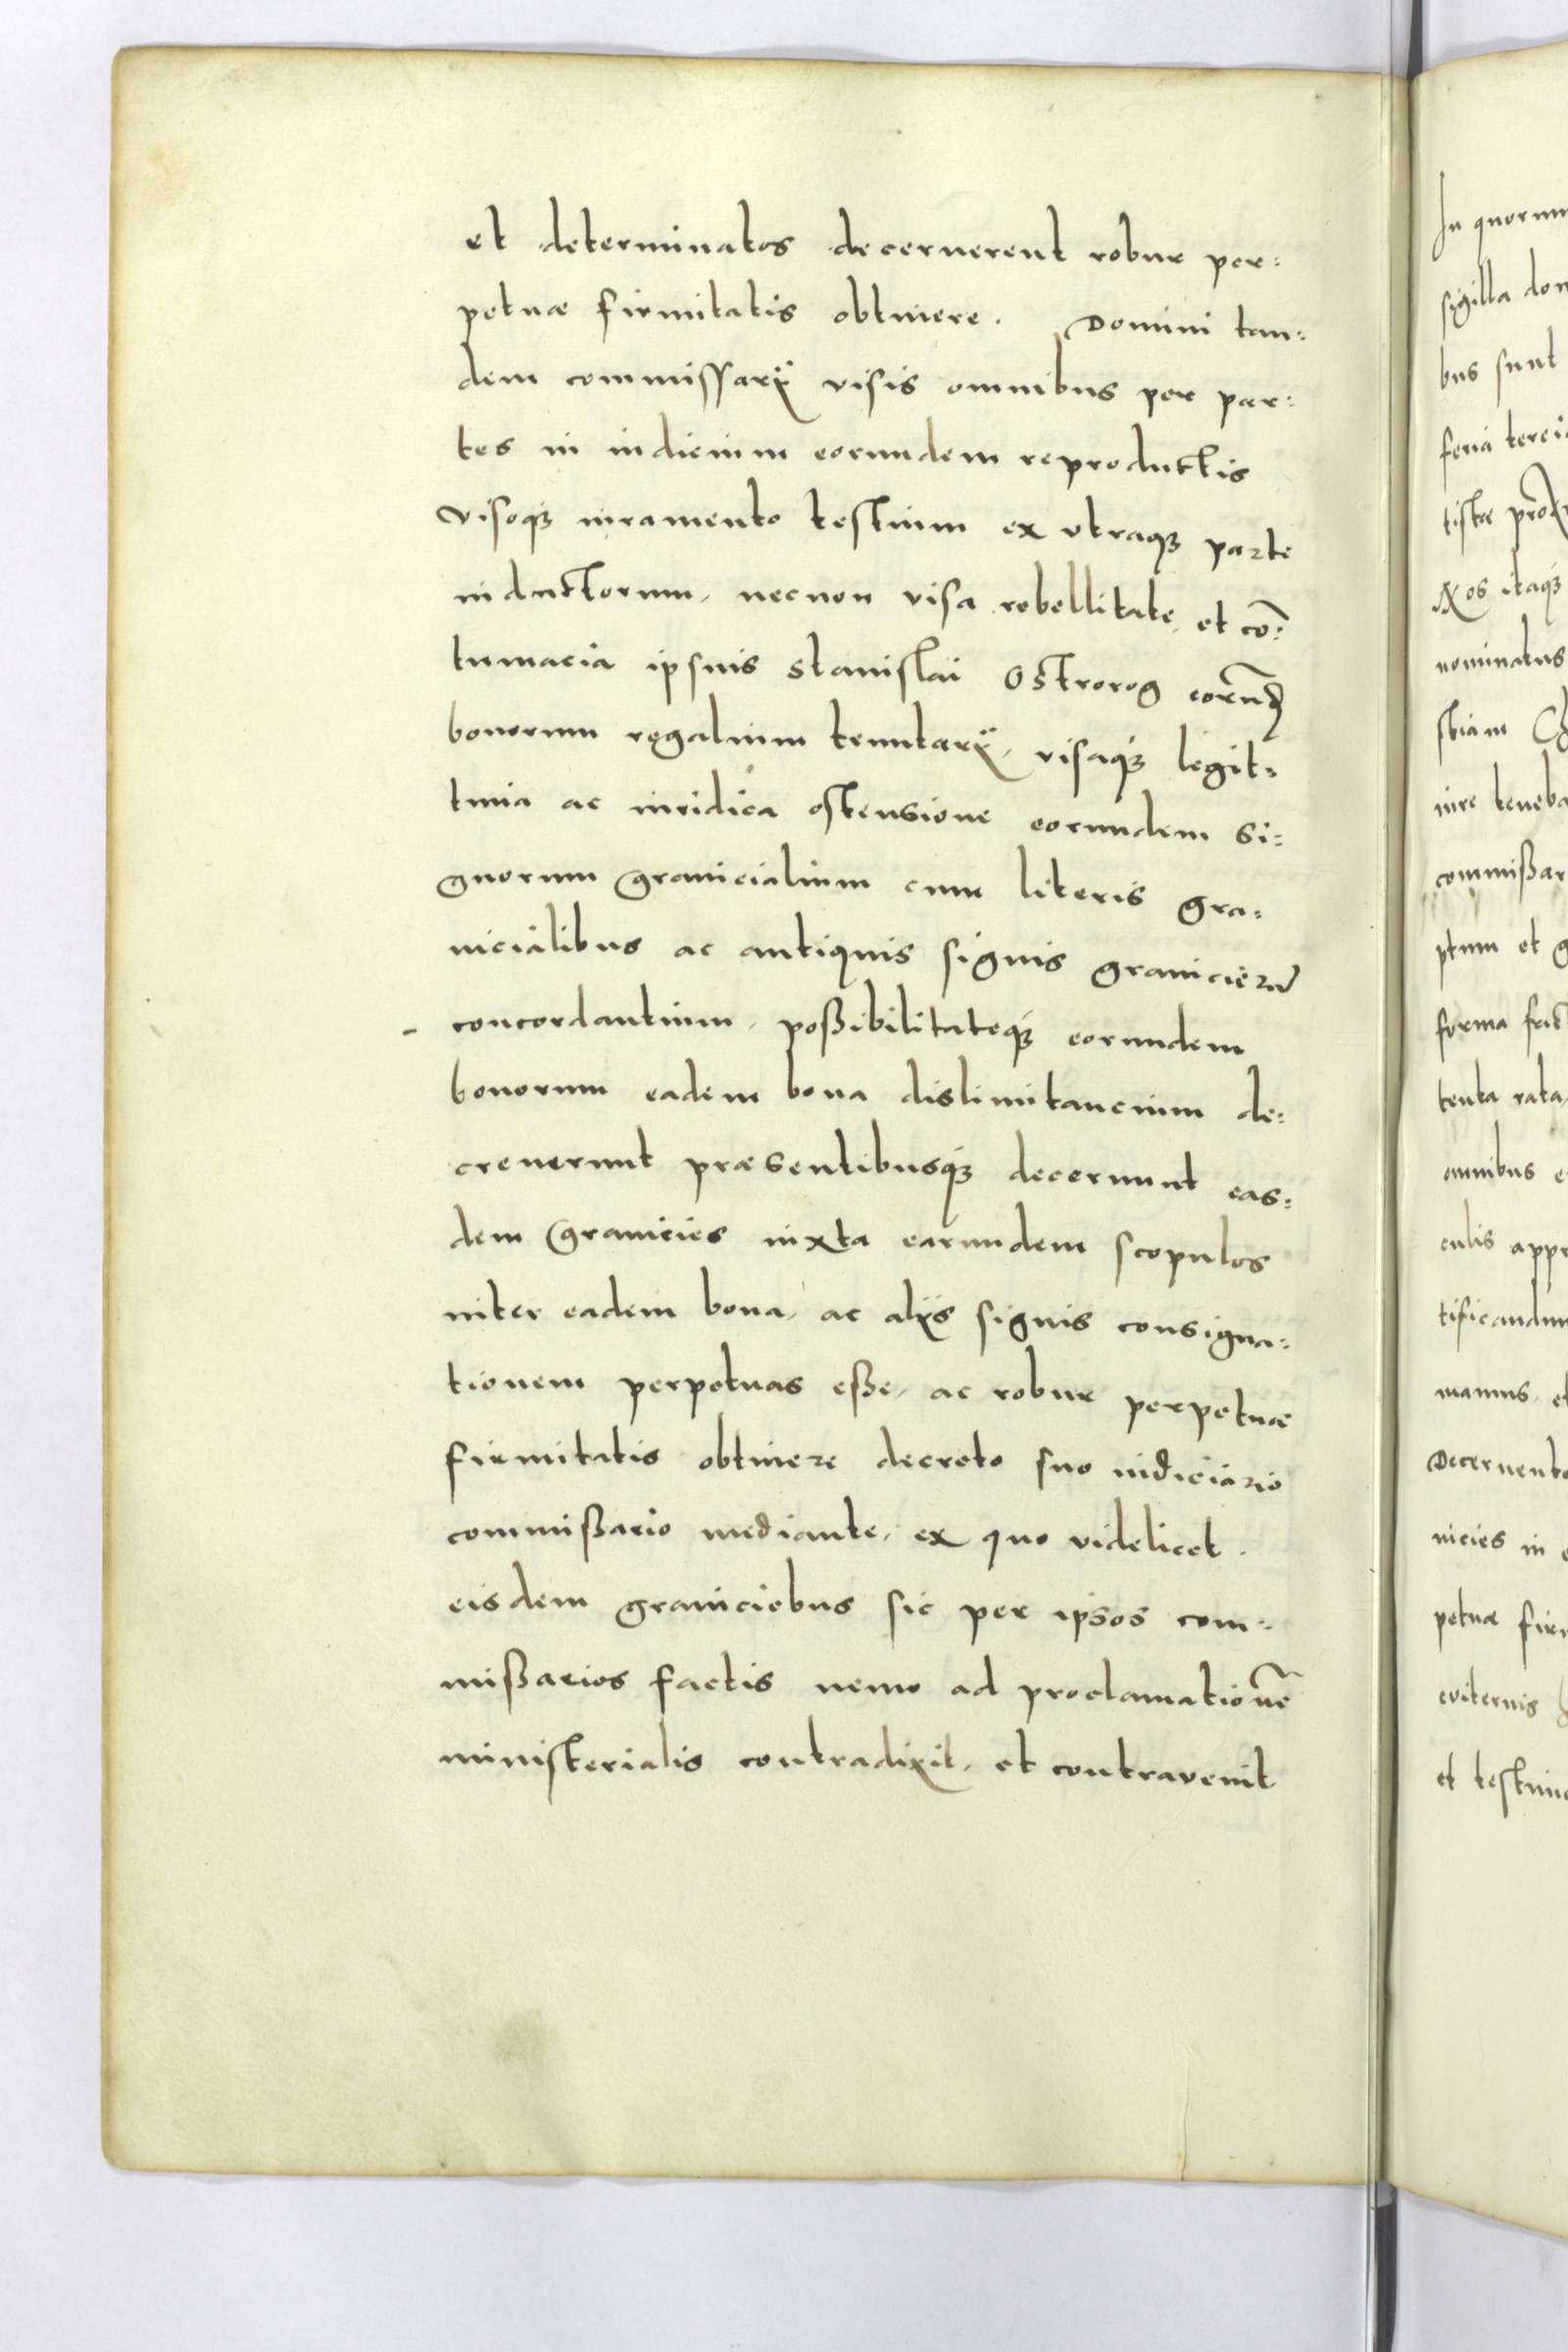 et determinatos decernerent robur per:
petuæ firmitatis obtinere. Domini tan:
dem commissarij visis omnibus per par:
tes in iudicium eorundem reproductis
visoqꝫ iuramento testium ex vtraqꝫ parte
inductorum, necnon visa rebellitate, et cō:
tumacia ipsius Stanislai Ostrorog eorūd
bonorum regalium tenutarij, visaqꝫ legit:
tima ac iuridica ostensione eorundem si:
gnorum granicialium cum literis gra:
nicialibus ac antiquis signis granicierū
- concordantium, poßibilitateqꝫ eorundem
bonorum eadem bona dislimitancium de:
creuerunt præsentibusqꝫ decernunt eas:
dem Granicies iuxta earundem scopulos
inter eadem bona, ac alijs signis consigna:
tionem perpetuas eße, ac robur perpetuæ
firmitatis obtinere decreto suo iudiciario
commißario mediante, ex quo videlicet.
eisdem graniciebus sic per ipsos com:
mißarios factis nemo ad proclamationē
ministerialis contradixit, et contravenit
In quorum
sigilla dom
bus sunt
feria tercia
tistæ prox
Nos itaqꝫ
nominatus
stiam Ch
iure teneba
commißar
ptum et g
forma
tenta rata,
omnibus e
culis appr
tificandum
manus, et
Decernente
nicies in e
petuæ firm
eviternis
et testimo